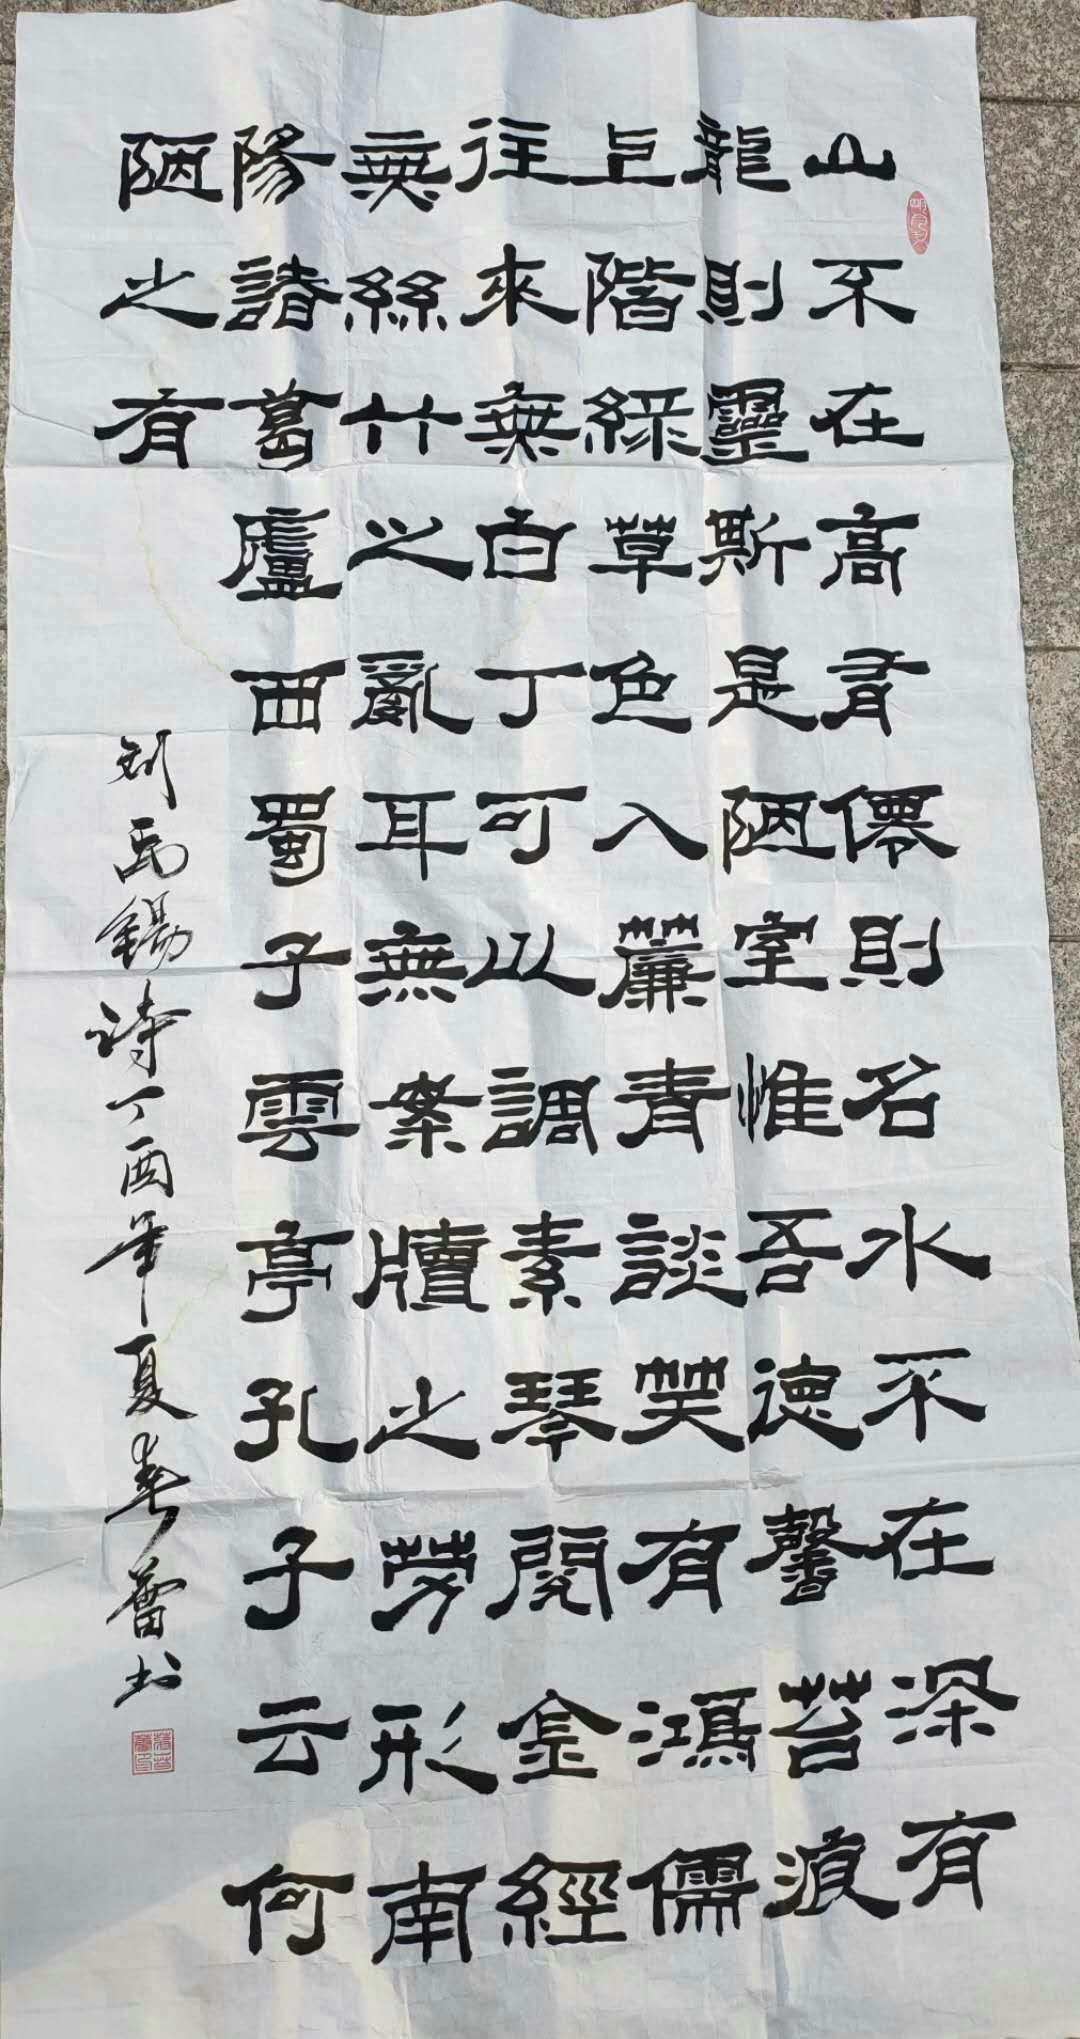 山不在高有僊則名水不在深有
龍則靈斯是陋室惟吾德馨苔痕
上階綠草色入簾青談笑有鴻儒
往來無白丁可以調素琴閱金經
無絲竹之亂耳無案牘之勞形南
陽諸葛廬西蜀子雲亭孔子云何
陋之有
刘禹錫詩丁酉年夏春蕾书